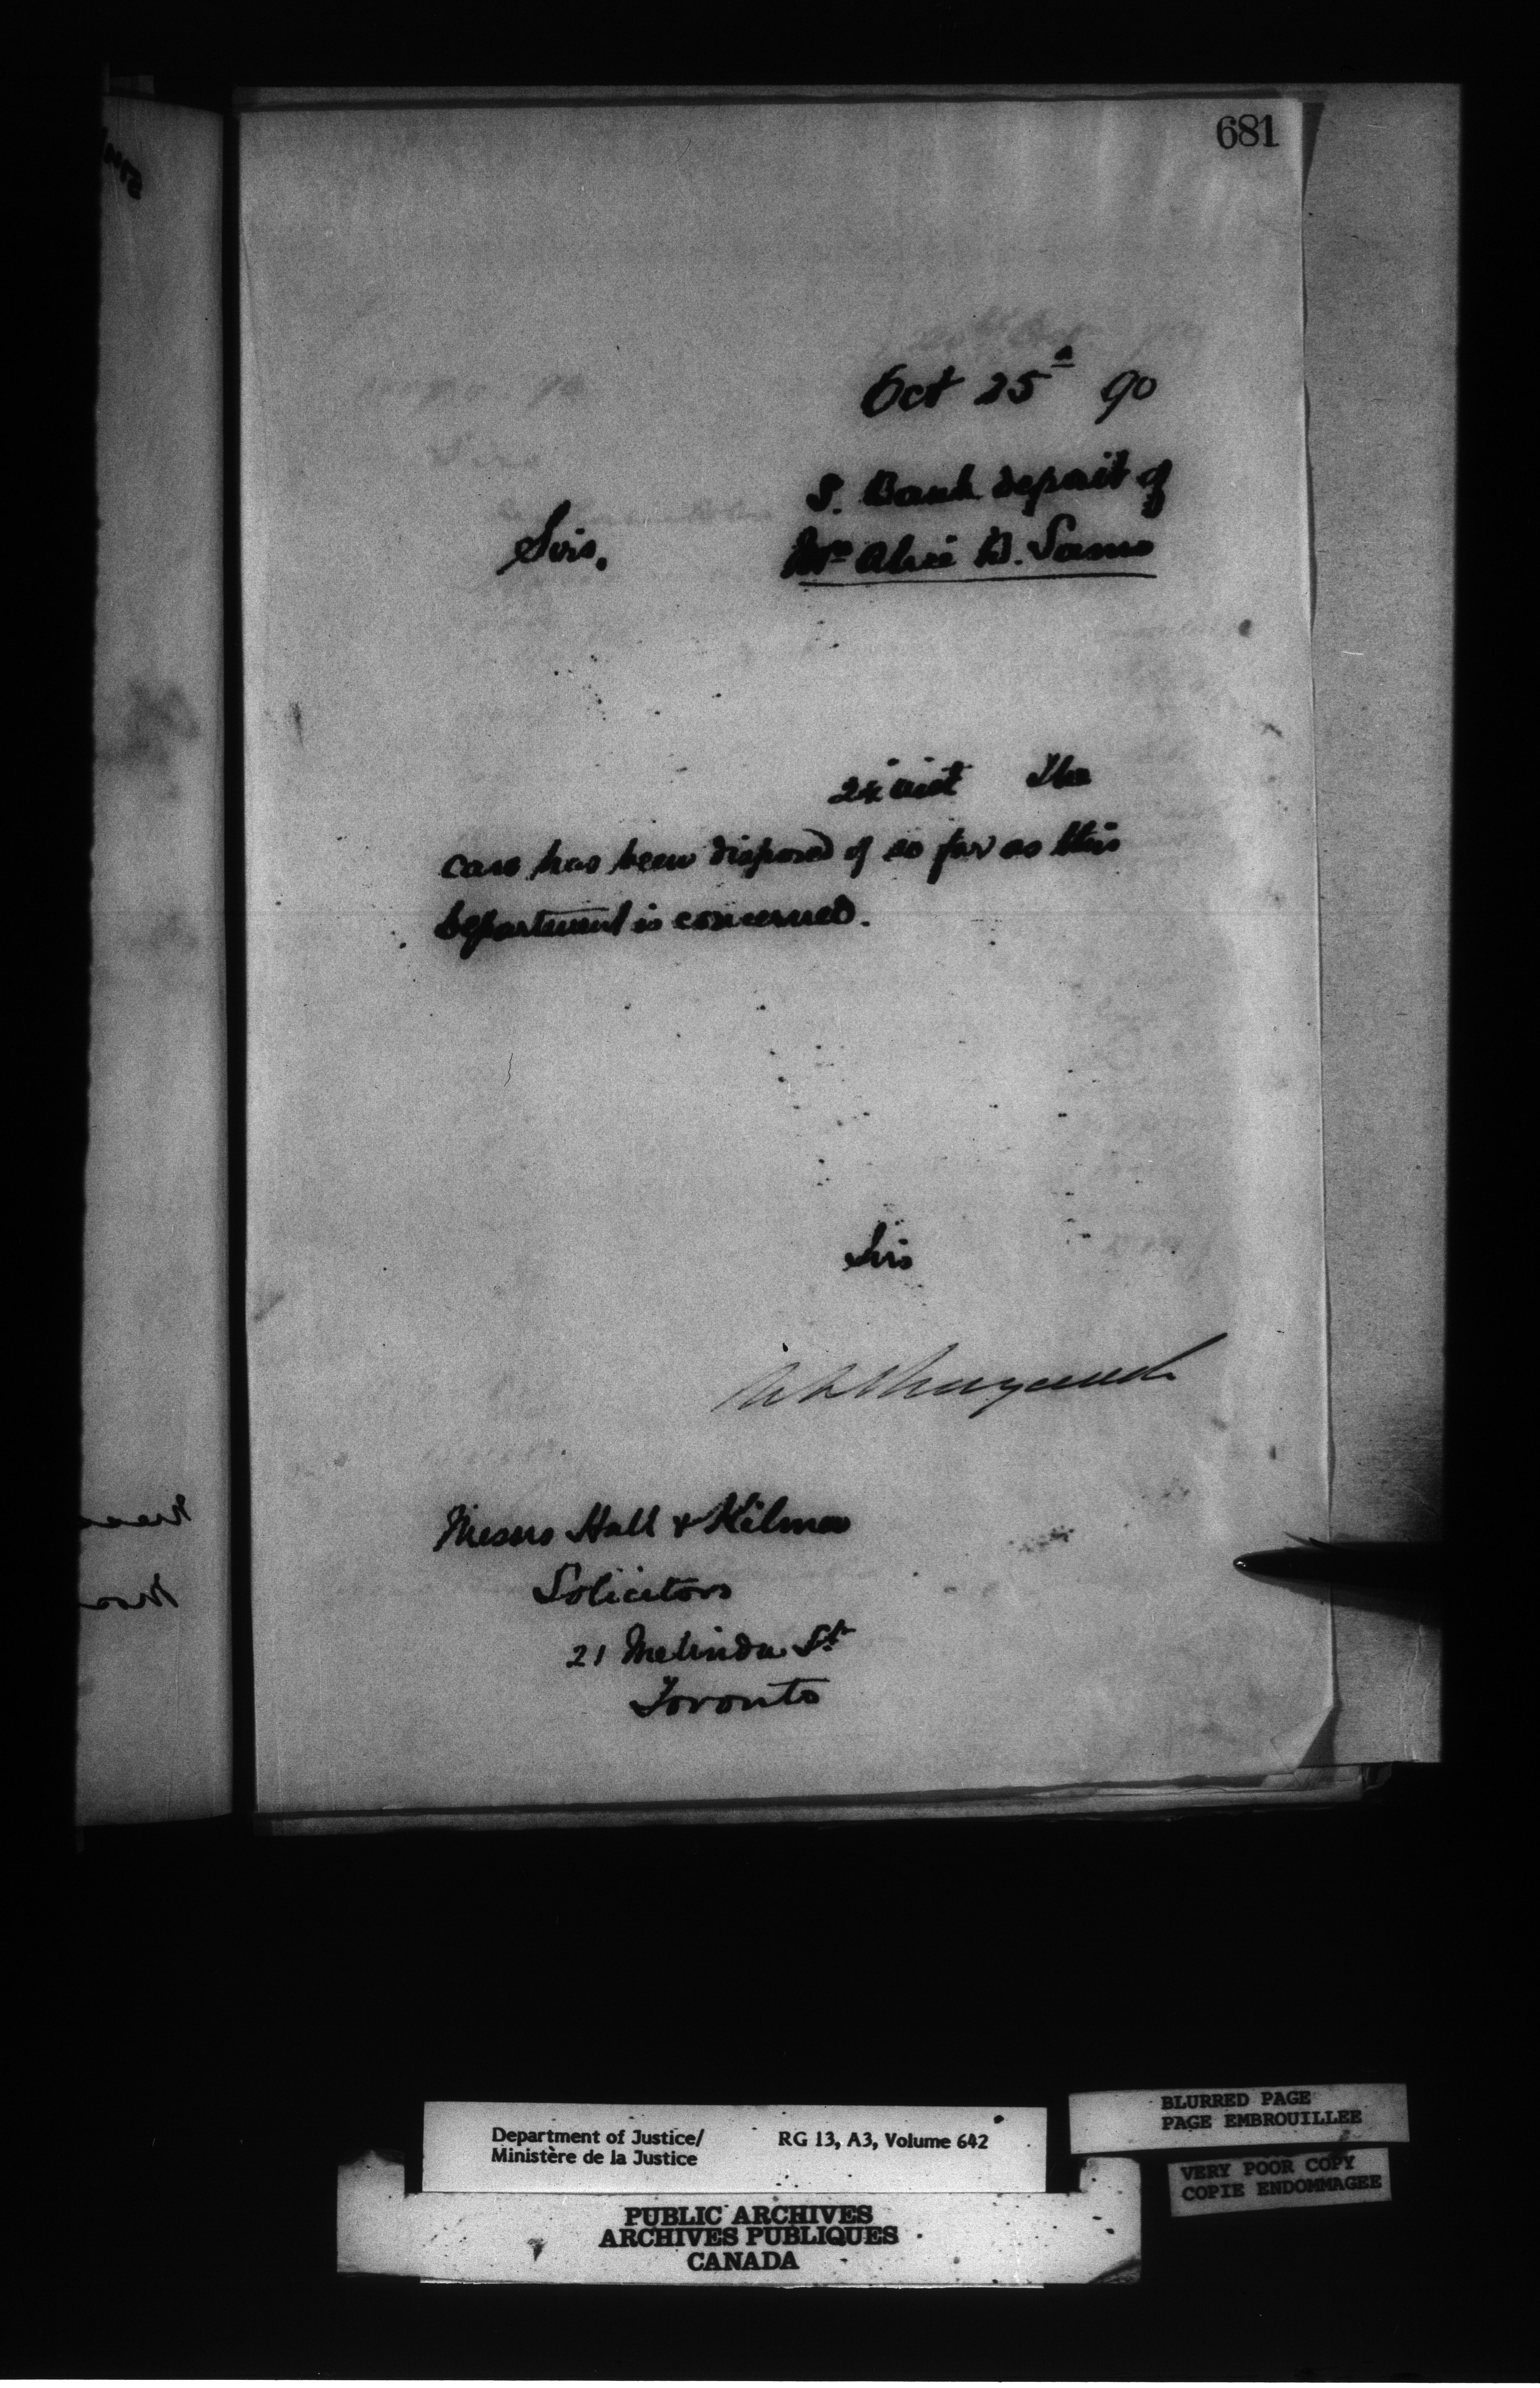 681
Oct 25th 90
S. Bank deposit of
Sirs, Mrs Alice B. Sams
24 inst The
case has been disposed of so far as this
Department is concerned.
Sirs
Messrs Hall & Kilmer
Solicitors
21 Melinda St
Toronto
BLURRED PAGE
PAGE EMBROUILLEE
Department of Justice/ RG 13, A3, Volume 642
Ministère de la Justice
VERY POOR COPY
COPIE ENDOMMAGEE
PUBLIC ARCHIVES
ARCHIVES PUBLIQUES
CANADA